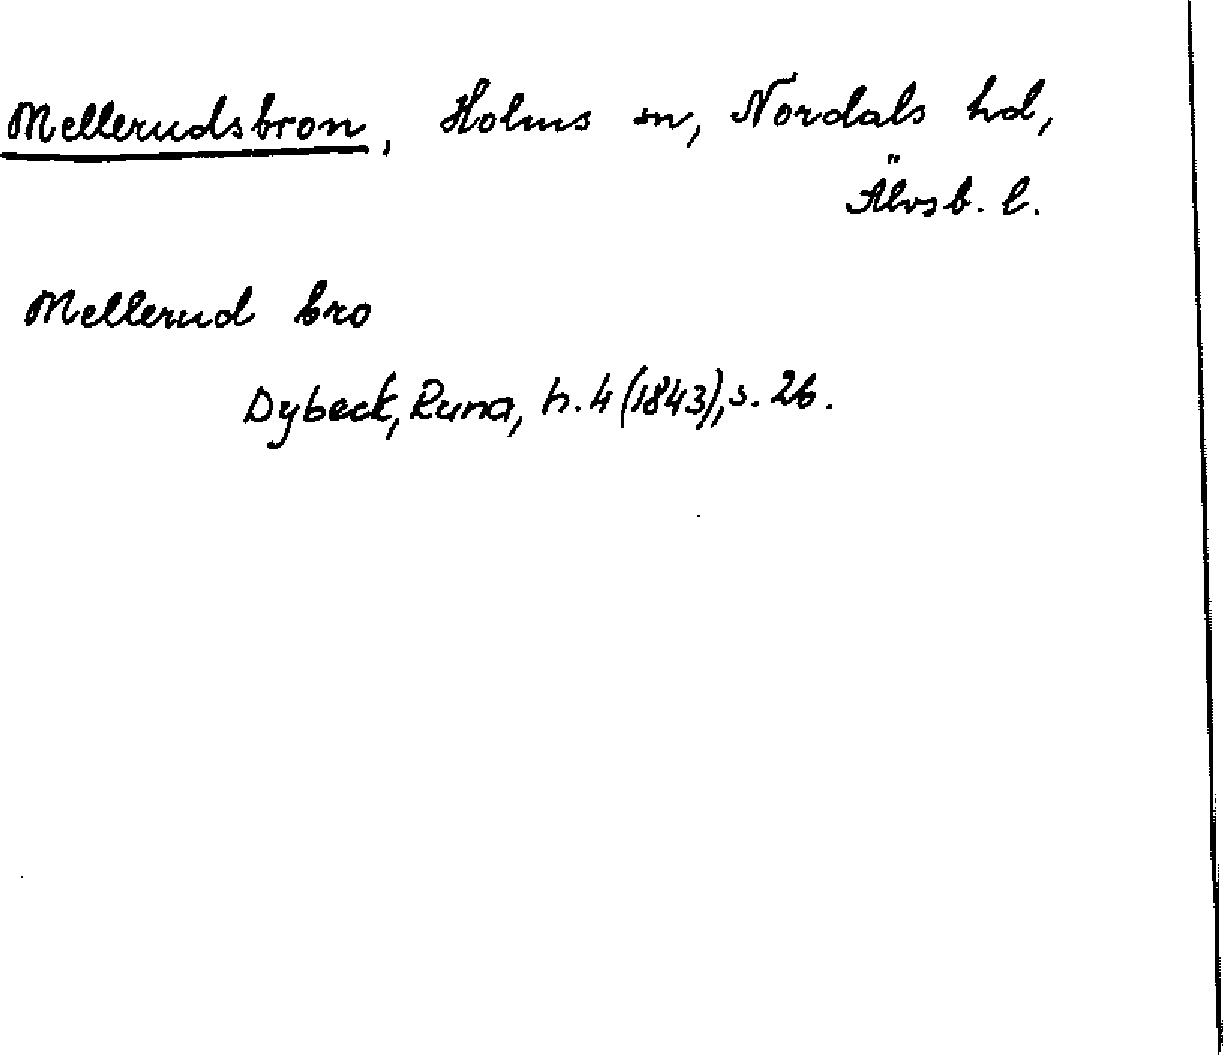 Mellerudsbron, Holms sn, Nordals hd,
Älvsb. l.
Mellerud bro
Dybeck, Runa, h. 4 (1843), s. 26.